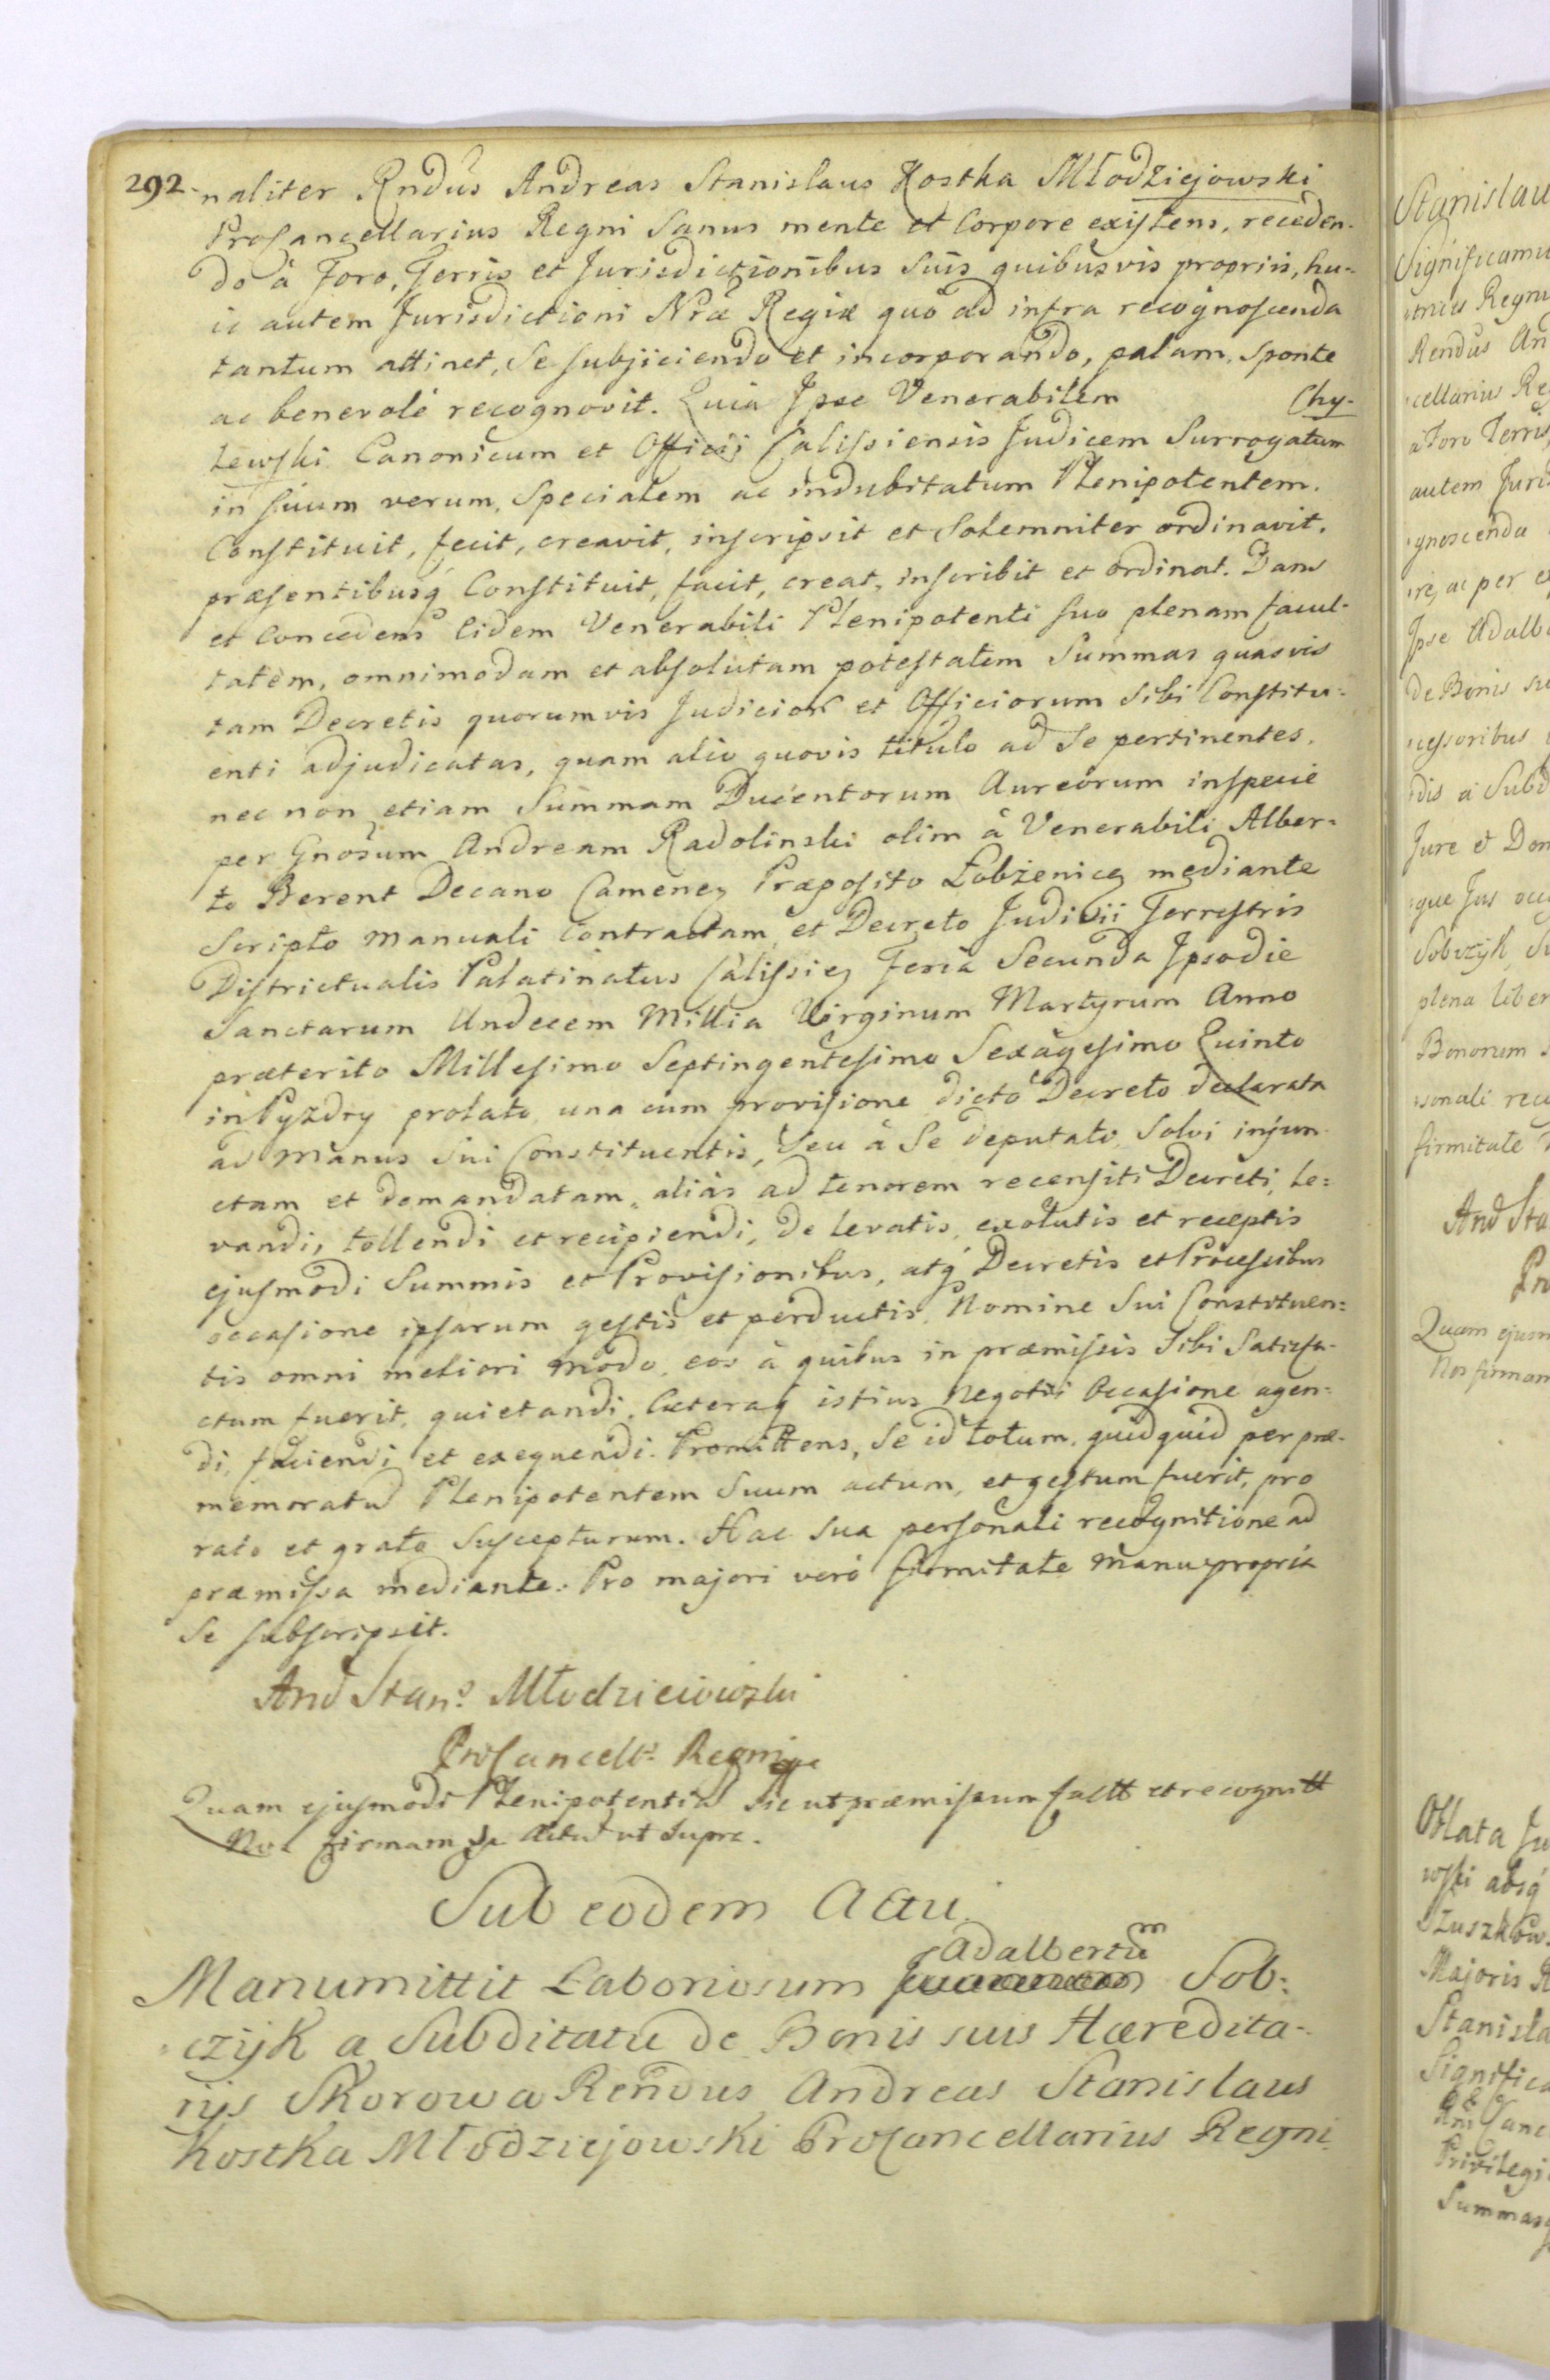 292
naliter Rndus Andreas Stanislaus Kostka Młodziejowski
ProCancellarius Regni Sanus mente et Corpore existens, receden-
do à Foro, Terris et Jurisdictionibus Suis quibusvis propriis, hu-
ic autem Jurisdictioni Nræ Regiæ quò ad infra recognoscenda
tantum attinet, Se subjiciendo et incorporando, palam, sponte
ac benevolè recognovit. Quia Ipse Venerabilem Chy-
lewski Canonicum et Officii Calissiensis Judicem Surrogatum
in suum verum, Specialem ac indubitatum Plenipotentem.
Constituit, fecit, creavit, inscripsit et Solemniter ordinavit,
præsentibusq Constituit, facit, creat, inscribit et ordinat. Dans
et Concedens Eidem Venerabili Plenipotenti suo plenam facul-
tatem, omnimodam et absolutam potestatem Summas quasvis
tam Decretis quorumvis Judicior et Officiorum Sibi Constitu-
enti adjudicatas, quam alio quovis titulo ad Se pertinentes,
nec non etiam Summam Ducentorum Aureorum in specie
per Gnosum Andream Radolinski olim à Venerabili Alber-
to Berent Decano Camenen Præposito Łobżenicen mediante
Scripto manuali contractam et Decreto Judicii Terrestris
Districtualis Palatinatus Calissien Feria Secunda Ipsodie
Sanctarum Undecem Millia Virginum Martyrum Anno
præterito Millesimo Septingentesimo Sexagesimo Quinto
in Pyzdry prolato, una cum provisione dicto Decreto declarata
ad manus Sui Constituentis, Seu à Se deputati, Solvi injun-
ctam et demandatam, aliàs ad tenorem recensiti Decreti, le-
vandi, tollendi et recipiendi, de levatis, exolutis et receptis
ejusmodi Summis et Provisionibus, atq Decretis et Processibus
occasione ipsarum gestis et perductis, Nomine Sui Constituen-
tis omni meliori modo, eos à quibus in præmissis Sibi Satisfa-
ctum fuerit, quietandi, Cæteraq istius Negotii Occasione agen-
di, faciendi et exequendi. Promittens, Se id totum, quidquid per præ-
memoratu Plenipotentem Suum actum, et gestum fuerit, pro
rato et grato Suscepturum. Hac Sua personali recognitione ad
præmissa mediante. Pro majori verò firmitate manu propria
Se subscripsit.
And Stan: Młodzieiowski
ProCancell: Regni
Quam ejusmodi Plenipotentia sic ut præmissum factt et recognitt
Nos firmam Actu ut supra.
Sub eodem Actu.
Manumittit Laboriosum Adalbertum Sob-
czyk a Subditatu de Bonis suis Hæredita-
rijs Skorowa Rendus Andreas Stanislaus
Kostka Młodziejowski ProCancellarius Regni
Stanislau
Significamu
Regni
Rendus An
cellarius Re
à Foro Terris
autem Juris
gnoscenda
re, ac per
Ipse Adalb
de Bonis su
cessoribus
dis à Subd
Jure et Dom
que Jus occ
Sobczyk
plena liber
Bonorum
sonali reco
firmitate
And Sta
Pro
Quam ejusm
Nos firmam
Oblata Ju
wski absq
Szuszkow
Majoris R
Stanisla
Significa
Canc
Privilegi
Summasq